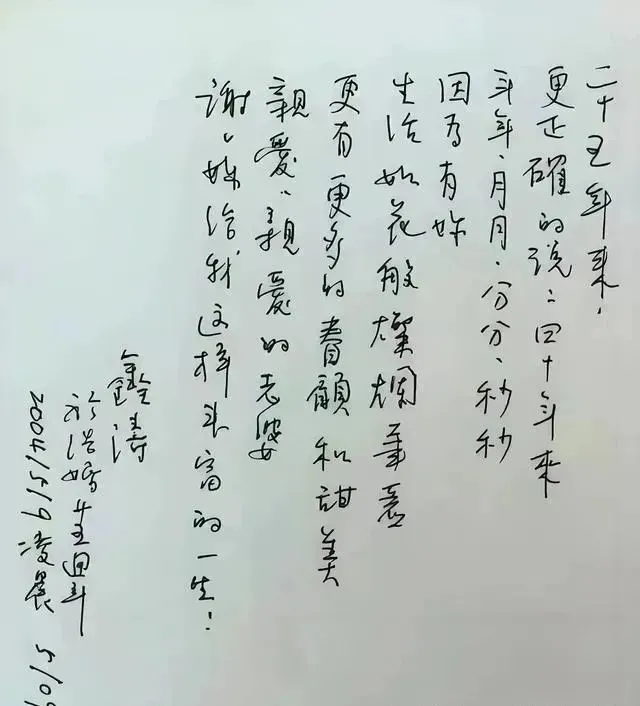 二十五年來,
更正確的說:四十年來
年年、月月、分分、秒秒
因為有妳
生活如花般燦爛
更有更多的眷顧和甜美
親愛、親愛的老婆
謝〻妳給我这樣丰富的一生!
鑫濤
於結婚廿五週年
2004/5/9 凌晨